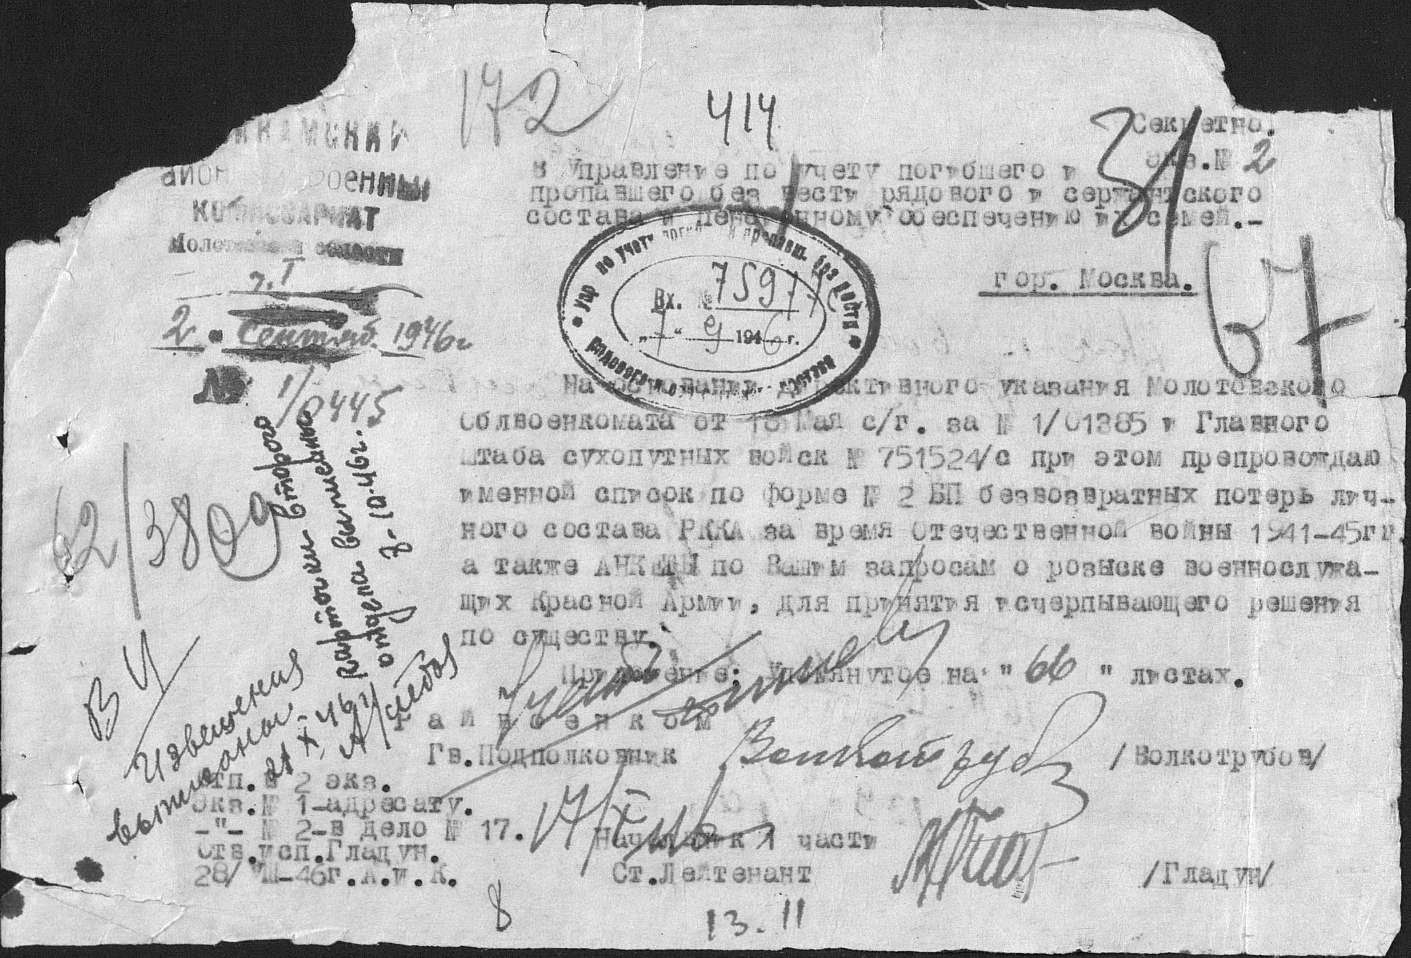 172
414
Секретно.
Экз.№ 2
31
67
КОМИССАРИАТ
Молотовской области
ч. I
2. Сентяб. 1946г
№ 1/0445
В Управление по учету погибшего и
пропавшего без вести рядового и сержантского
состава и пенсионному обеспечению их семей.-
гор. Москва.
Упр по учету погибш. и пропавш. без вести
рядового и сержант. состава
Вх. №
"7" 9 1946 г.
На основании директивного указания Молотовского
Облвоенкомата от 18 Мая с/г. за № 1/01385 и Главного
штаба сухопутных войск № 751524/с при этом препровождаю
именной список по форме № 2 БП безвозвратных потерь лич-
ного состава РККА за время Отечественной войны 1941-45гг.
а также АНКЕТЫ по Вашим запросам о розыске военнослужа-
щих Красной Армии, для принятия исчерпывающего решения
по существу.
Приложение: Упомянутое на " 66 " листах.
Райвоенком
Гв.Подполковник /Волкотрубов/
Начальник 1 части
Ст.Лейтенант /Гладун/
62/3809
Карточки второго
отдела выписаны
8-10.46г.
ВУ
Извещения
выписаны
21 X-46
Отп. в 2 экз.
Экз.№ 1-адресату.
-"- № 2-в дело № 17.
Отв.исп.Гладун.
28/VIII-46г.А.и.К.
8
13.11